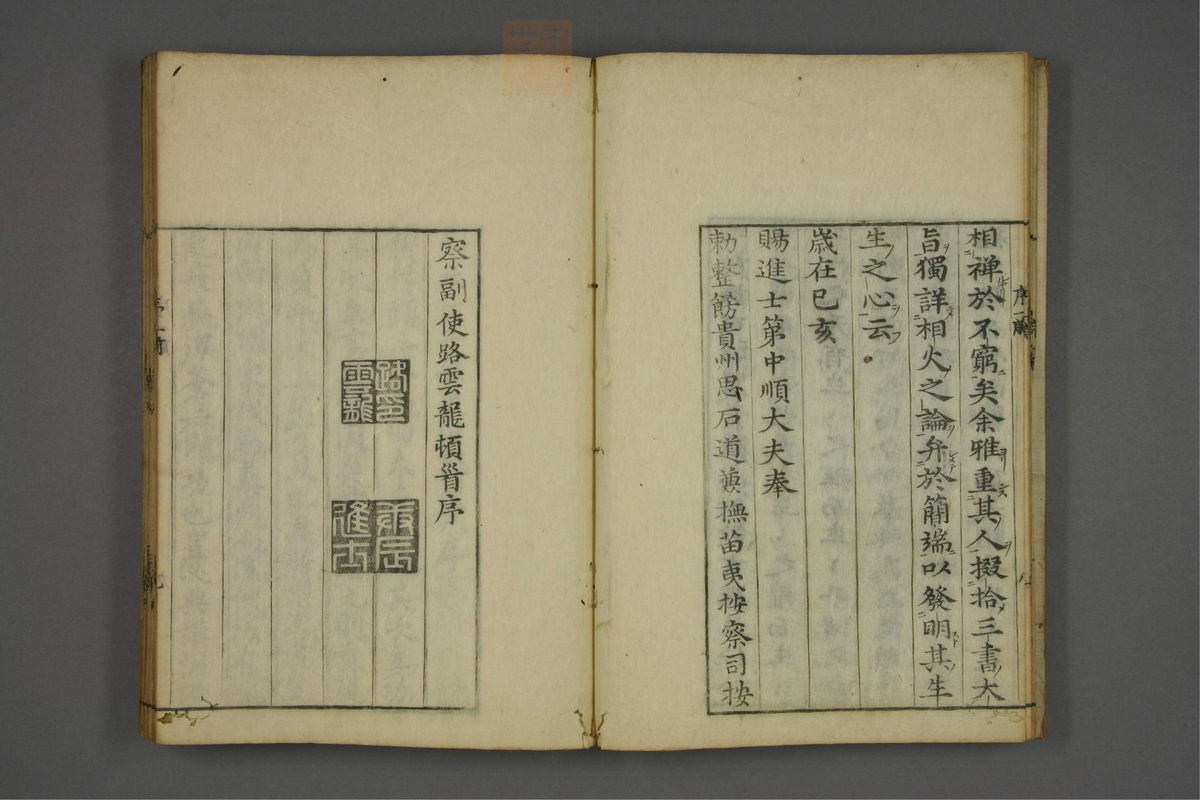 相禅於不窮矣余雅重其人掇拾三書大
旨獨詳相火之論弁於簡端以發明其生
生之心云
歲在已亥
賜進士第中順大夫奉
勅整飭貴州思石道兼撫苗夷按察司按
序
察副使路雲龍頓首序
路印
雲龍
丙辰
進士